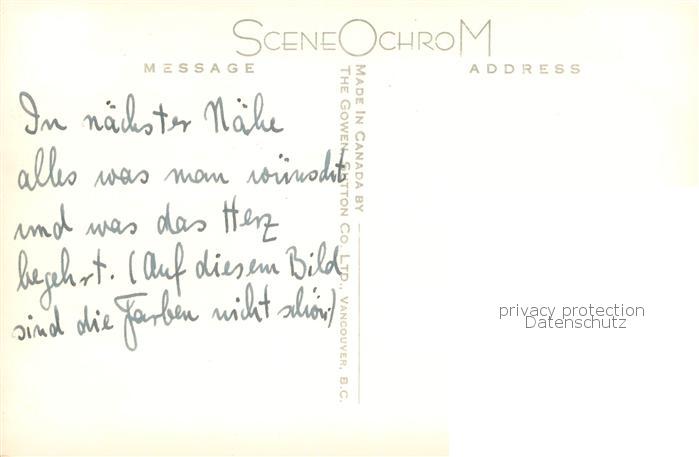 SCENEOCHROM
MESSAGE
ADDRESS
In nächster Nähe
alles was man wünscht
und was das Herz
begehrt. (Auf diesem Bild
sind die Farben nicht schön!)
MADE IN CANADA BY
THE GOWEN SUTTON CO. LTD., VANCOUVER, B.C.
privacy protection
Datenschutz